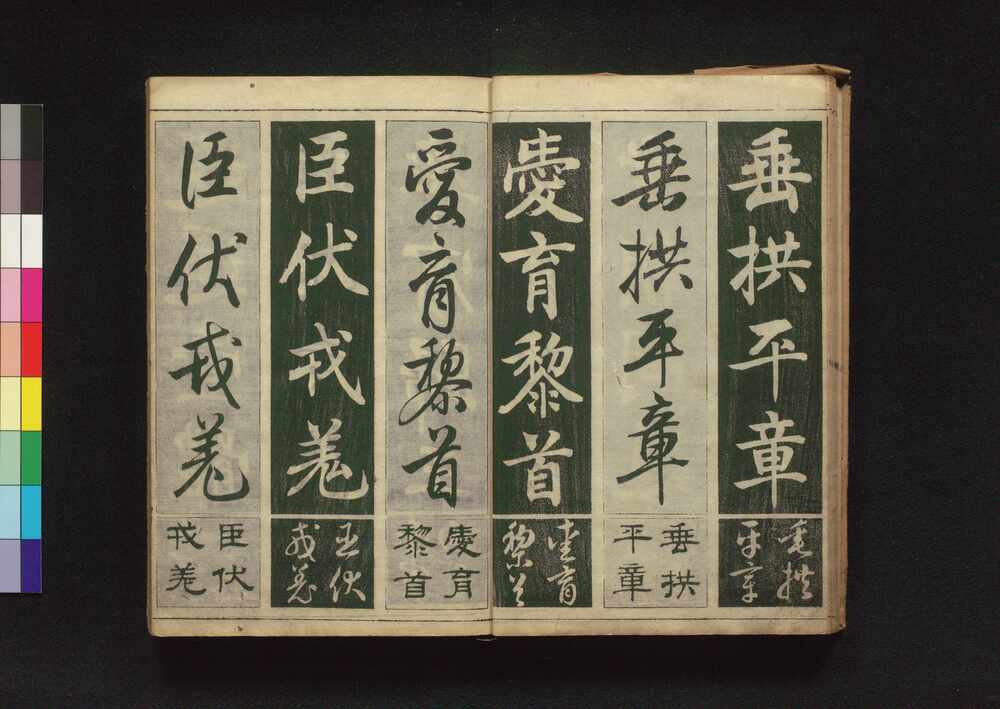 垂拱平章
垂拱
平章
垂拱平章
垂拱
平章
愛育黎首
愛育
黎首
愛育黎首
愛育
黎首
臣伏戎羌
臣伏
戎羌
臣伏戎羌
臣伏
戎羌